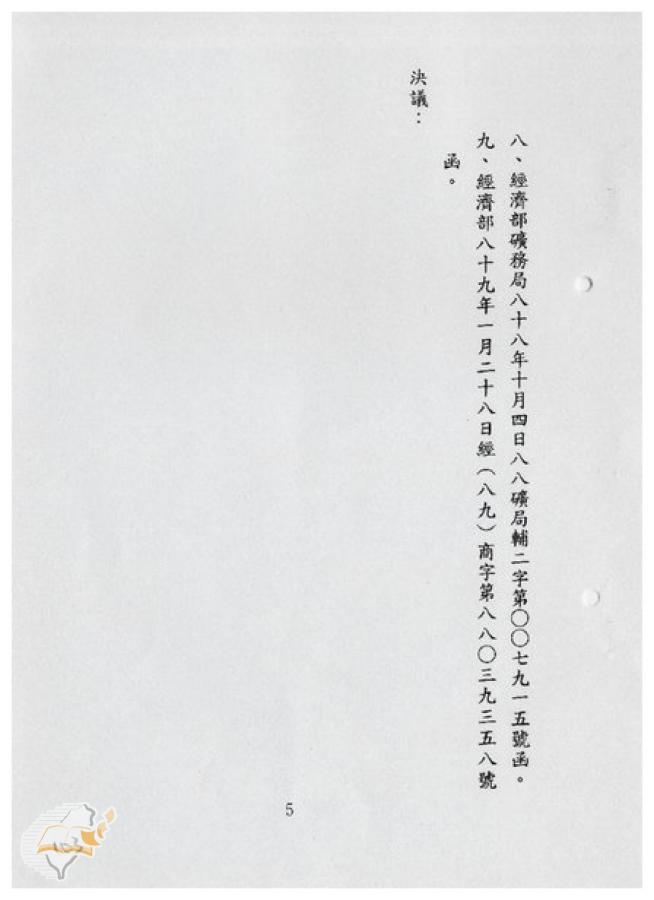 八、經濟部礦務局八十八年十月四日八八礦局輔二字第○○七九一五號函。
九、經濟部八十九年一月二十八日經(八九)商字第八八○三九三五八號
函。
決議：
5